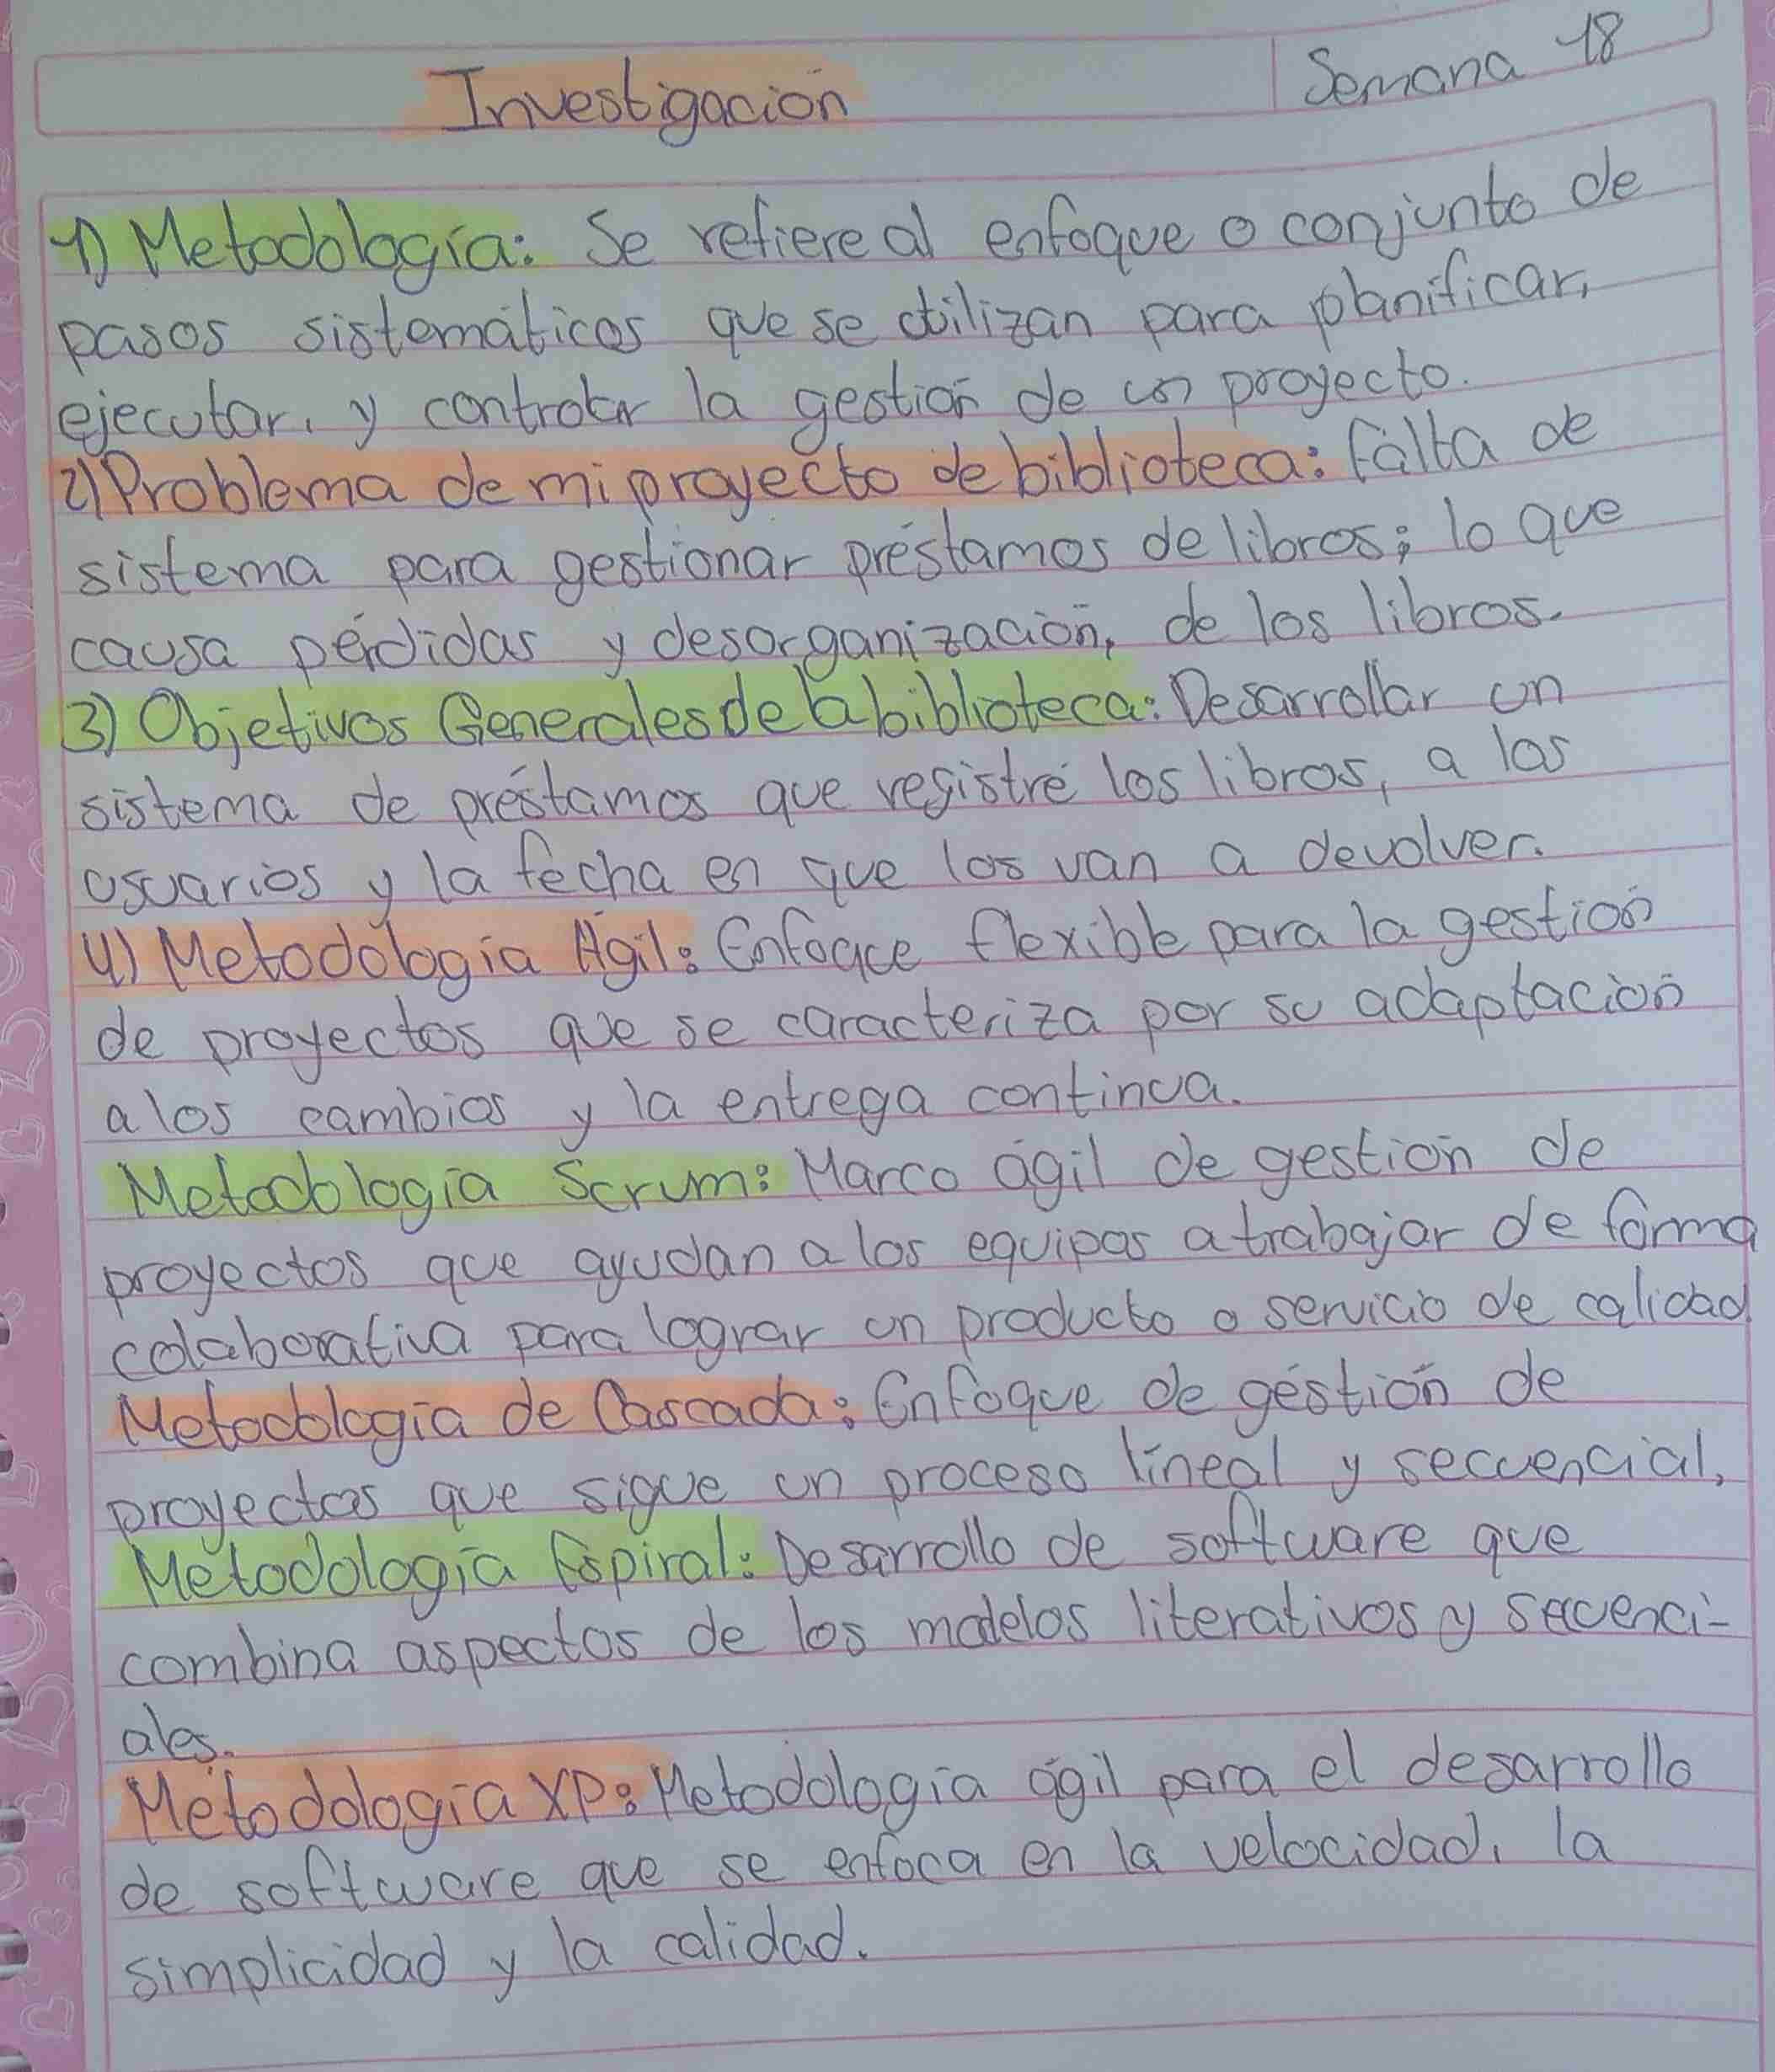 Investigación
Semana 18
1) Metodología: Se refiere al enfoque o conjunto de
pasos sistemáticos que se utilizan para planificar,
ejecutar, y controlar la gestión de un proyecto.
2) Problema de mi proyecto de biblioteca: Falta de
sistema para gestionar préstamos de libros; lo que
causa pérdidas y desorganización, de los libros.
3) Objetivos Generales de la biblioteca: Desarrollar un
sistema de préstamos que registré los libros, a los
usuarios y la fecha en que los van a devolver.
4) Metodología Ágil: Enfoque flexible para la gestión
de proyectos que se caracteriza por su adaptación
a los cambios y la entrega continua.
Metodología Scrum: Marco ágil de gestión de
proyectos que ayudan a los equipos a trabajar de forma
colaborativa para lograr un producto o servicio de calidad
Metodología de Cascada: Enfoque de géstión de
proyectos que sigue un proceso líneal y secuencial,
Metodología Espiral: Desarrollo de software que
combina aspectos de los modelos literativos y secuenci-
ales.
Metodología XP: Metodología ágil para el desarrollo
de software que se enfoca en la velocidad, la
simplicidad y la calidad.